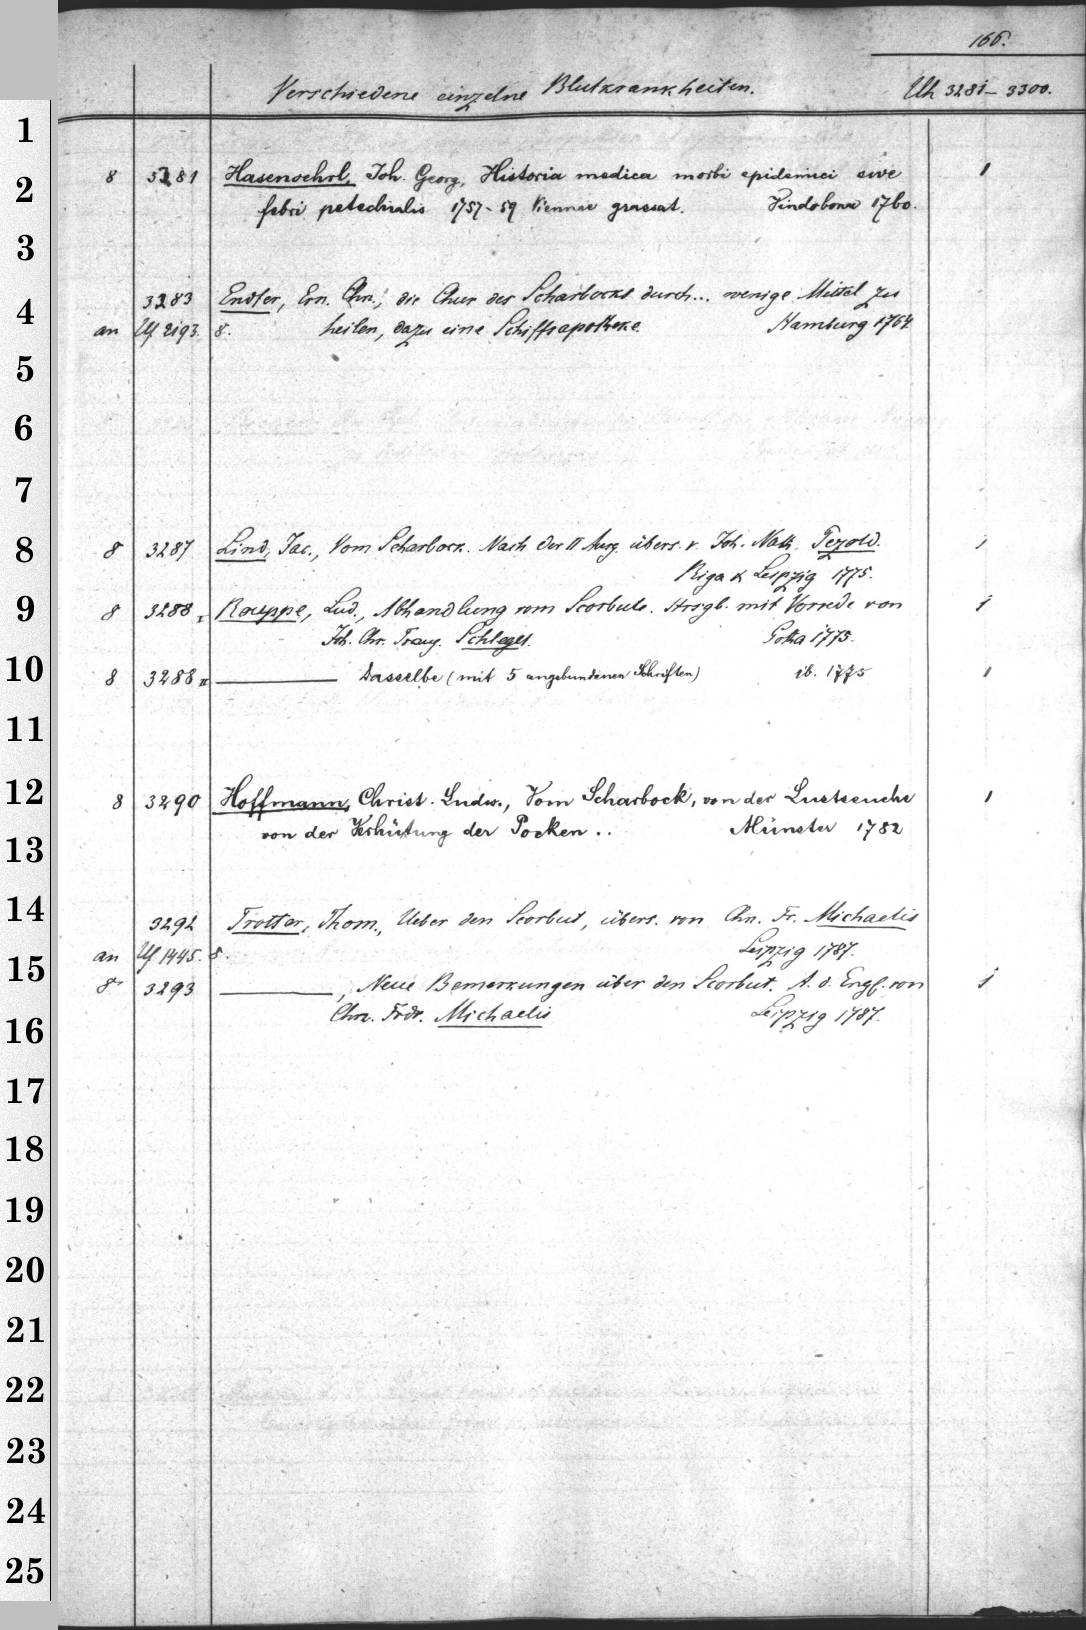 166.
Verschiedene einzelne Blutkrankheiten. Uh 3281–3300.
1
2 8 3281 Hasenoehrl, Joh. Georg, Historia medica morbi epidemici sive 1
febri petechialis 1757-59 Viennae grassat. Vindobonae 1760.
3
3283 Endter, Ern. Chn., die Chur des Scharbocks durch... wenige Mittel zu
4
an Uf 2193. 8. heilen, dazu eine Schiffsapotheke Hamburg 1764
5
6
7
8 8 3287 Lind, Jac., Vom Scharbock. Nach der II Ausg. übers. v. Joh. Nath. Pezold. 1
Riga & Leipzig 1775.
9 8 3288 I Rouppe, Lud., Abhandlung vom Scorbute. Hrsgb. mit Vorrede von 1
Joh. Chr. Traug. Schlegel. Gotha 1775.
10 8 3288 II ——— Dasselbe (mit 5 angebundenen Schriften) ib. 1775 1
11
12 8 3290 Hoffmann, Christ. Ludw., Vom Scharbock, von der Lustseuche 1
von der Verhütung der Pocken .. Münster 1782
13
14 3292 Trotter, Thom., Ueber den Scorbut, übers. von Chn. Fr. Michaelis
an Uf 1445. 8. Leipzig 1787.
15
8 3293 ———, Neue Bemerkungen über den Scorbut. A. d. Engl. von 1
Chn. Frdr. Michaelis Leipzig 1787.
16
17
18
19
20
21
22
23
24
25